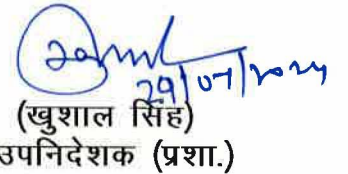 29/07/2024
(खुशाल सिंह)
उपनिदेशक (प्रशा.)